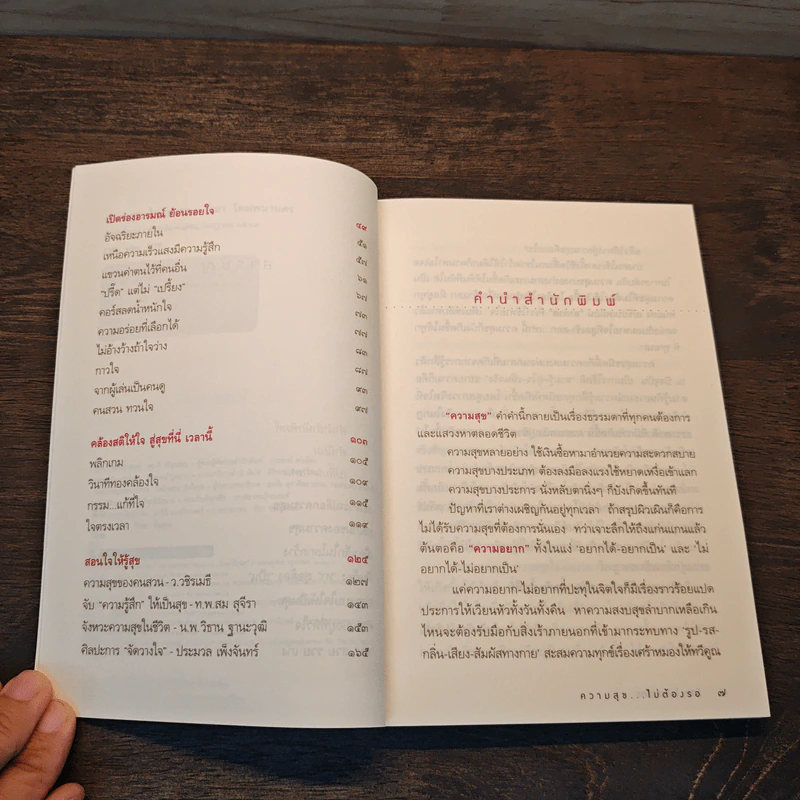 เปิดร่องอารมณ์ ย้อนรอยใจ ๔๙
อัจฉริยะภายใน ๕๑
เหนือความเร็วแสงมีความรู้สึก ๕๗
แขวนค่าตนไว้ที่คนอื่น ๖๑
"ปรี๊ด" แต่ไม่ "เปรี้ยง" ๖๗
คอร์สลดน้ำหนักใจ ๗๓
ความอร่อยที่เลือกได้ ๗๗
ไม่อ้างว้างถ้าใจว่าง ๘๓
กาวใจ ๘๗
จากผู้เล่นเป็นคนดู ๙๓
คนสวน ทวนใจ ๙๗
คล้องสติให้ใจ สู่สุขที่นี่ เวลานี้ ๑๐๓
พลิกเกม ๑๐๕
วินาทีทองคล้องใจ ๑๐๙
กรรม...แก้ที่ใจ ๑๑๕
ใจตรงเวลา ๑๑๙
สอนใจให้รู้สุข ๑๒๕
ความสุขของคนสวน - ว.วชิรเมธี ๑๒๗
จับ "ความรู้สึก" ให้เป็นสุข - ท.พ.สม สุจีรา ๑๔๓
จังหวะความสุขในชีวิต - น.พ.วิธาน ฐานะวุฑฒ์ ๑๕๓
ศิลปะการ "จัดวางใจ" - ประมวล เพ็งจันทร์ ๑๖๕
คำนำสำนักพิมพ์
"ความสุข" คำคำนี้กลายเป็นเรื่องธรรมดาที่ทุกคนต้องการ
และแสวงหาตลอดชีวิต
ความสุขหลายอย่าง ใช้เงินซื้อหามาอำนวยความสะดวกสบาย
ความสุขบางประเภท ต้องลงมือลงแรงใช้หยาดเหงื่อเข้าแลก
ความสุขบางประการ นั่งหลับตานิ่งๆ ก็บังเกิดขึ้นทันที
ปัญหาที่เราต่างเผชิญกันอยู่ทุกเวลา ถ้าสรุปผิวเผินก็คือการ
ไม่ได้รับความสุขที่ต้องการนั่นเอง ทว่าเจาะลึกให้ถึงแก่นแกนแล้ว
ต้นตอคือ "ความอยาก" ทั้งในแง่ 'อยากได้-อยากเป็น' และ 'ไม่
อยากได้-ไม่อยากเป็น'
แค่ความอยาก-ไม่อยากที่ปะทุในจิตใจก็มีเรื่องราวร้อยแปด
ประการให้เวียนหัวทั้งวันทั้งคืน หาความสงบสุขลำบากเหลือเกิน
ไหนจะต้องรับมือกับสิ่งเร้าภายนอกที่เข้ามากระทบทาง 'รูป-รส-
กลิ่น-เสียง-สัมผัสทางกาย' สะสมความทุกข์เรื่องเศร้าหมองให้ทวีคูณ
ความสุข...ไม่ต้องรอ ๗